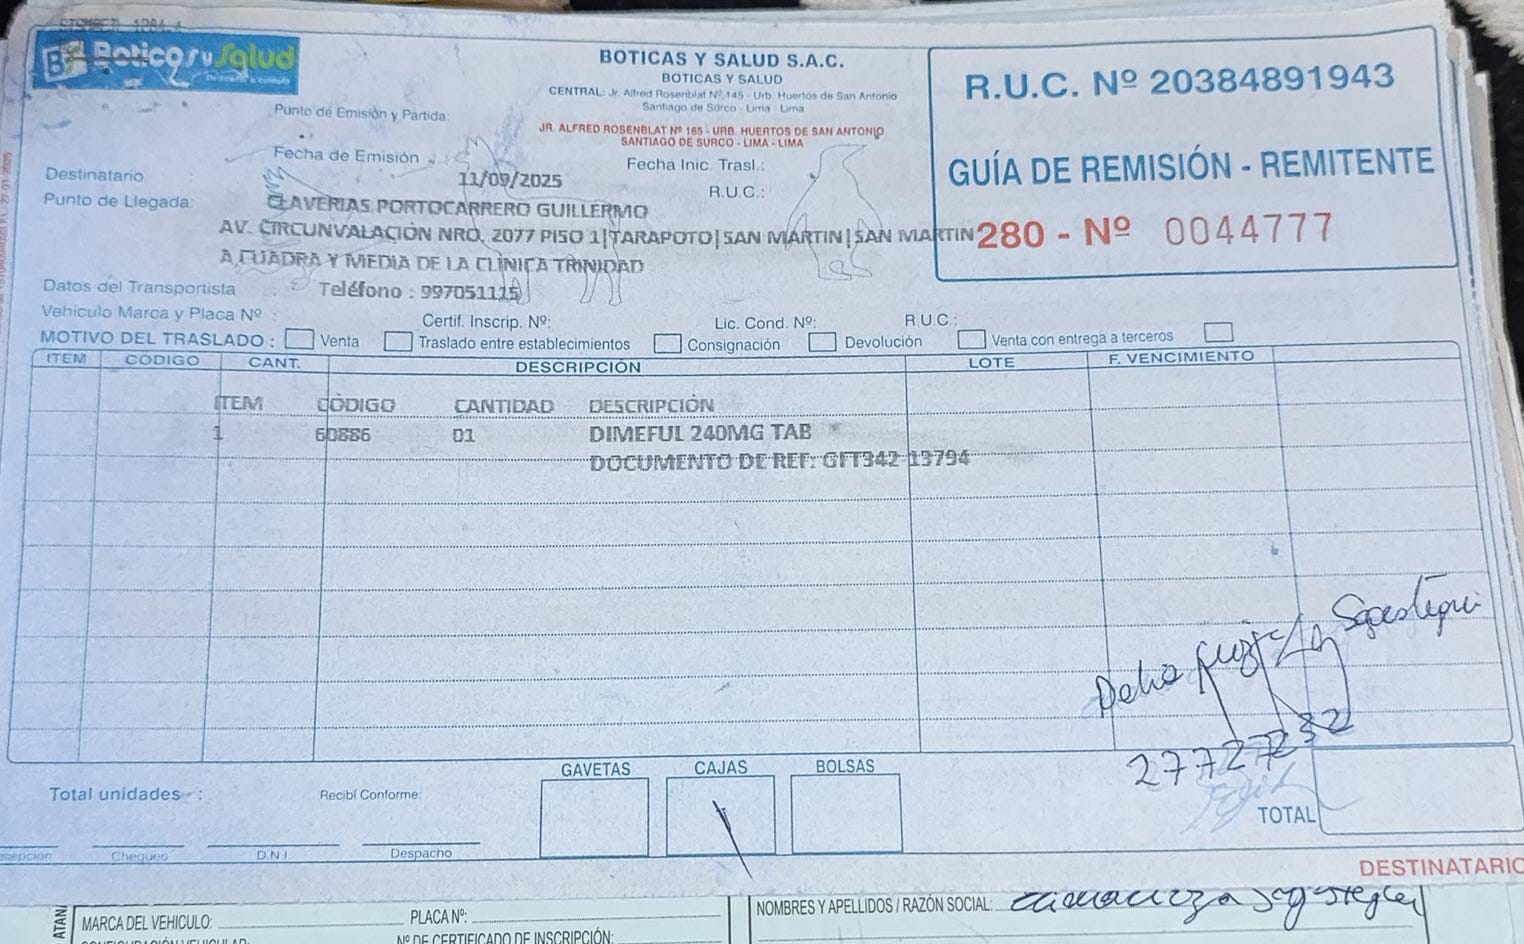 Boticas y Salud
BOTICAS Y SALUD S.A.C.
BOTICAS Y SALUD
CENTRAL: Jr. Alfred Rosenblat Nº 145 - Urb. Huertos de San Antonio
Santiago de Surco - Lima - Lima
JR. ALFRED ROSENBLAT Nº 165 - URB. HUERTOS DE SAN ANTONIO
SANTIAGO DE SURCO - LIMA - LIMA
R.U.C. Nº 20384891943
GUÍA DE REMISIÓN - REMITENTE
280 - Nº 0044777
Punto de Emisión y Partida:
Fecha de Emisión : 11/09/2025
Fecha Inic. Trasl.:
Destinatario
R.U.C.:
Punto de Llegada: CLAVERIAS PORTOCARRERO GUILLERMO
AV. CIRCUNVALACIÓN NRO. 2077 PISO 1|TARAPOTO|SAN MARTIN|SAN MARTIN
A CUADRA Y MEDIA DE LA CLÍNICA TRINIDAD
Datos del Transportista : Teléfono : 997051115
Vehículo Marca y Placa Nº : Certif. Inscrip. Nº: Lic. Cond. Nº: R.U.C.:
MOTIVO DEL TRASLADO : Venta Traslado entre establecimientos Consignación Devolución Venta con entrega a terceros
ITEM CÓDIGO CANT. DESCRIPCIÓN LOTE F. VENCIMIENTO
ITEM CÓDIGO CANTIDAD DESCRIPCIÓN
1 60886 01 DIMEFUL 240MG TAB
DOCUMENTO DE REF: GFT342-13794
27727232
GAVETAS CAJAS BOLSAS
Total unidades : Recibí Conforme:
TOTAL
Chequeo D.N.I. Despacho
DESTINATARIO
MARCA DEL VEHICULO: PLACA Nº: NOMBRES Y APELLIDOS / RAZÓN SOCIAL:
Nº DE CERTIFICADO DE INSCRIPCIÓN: